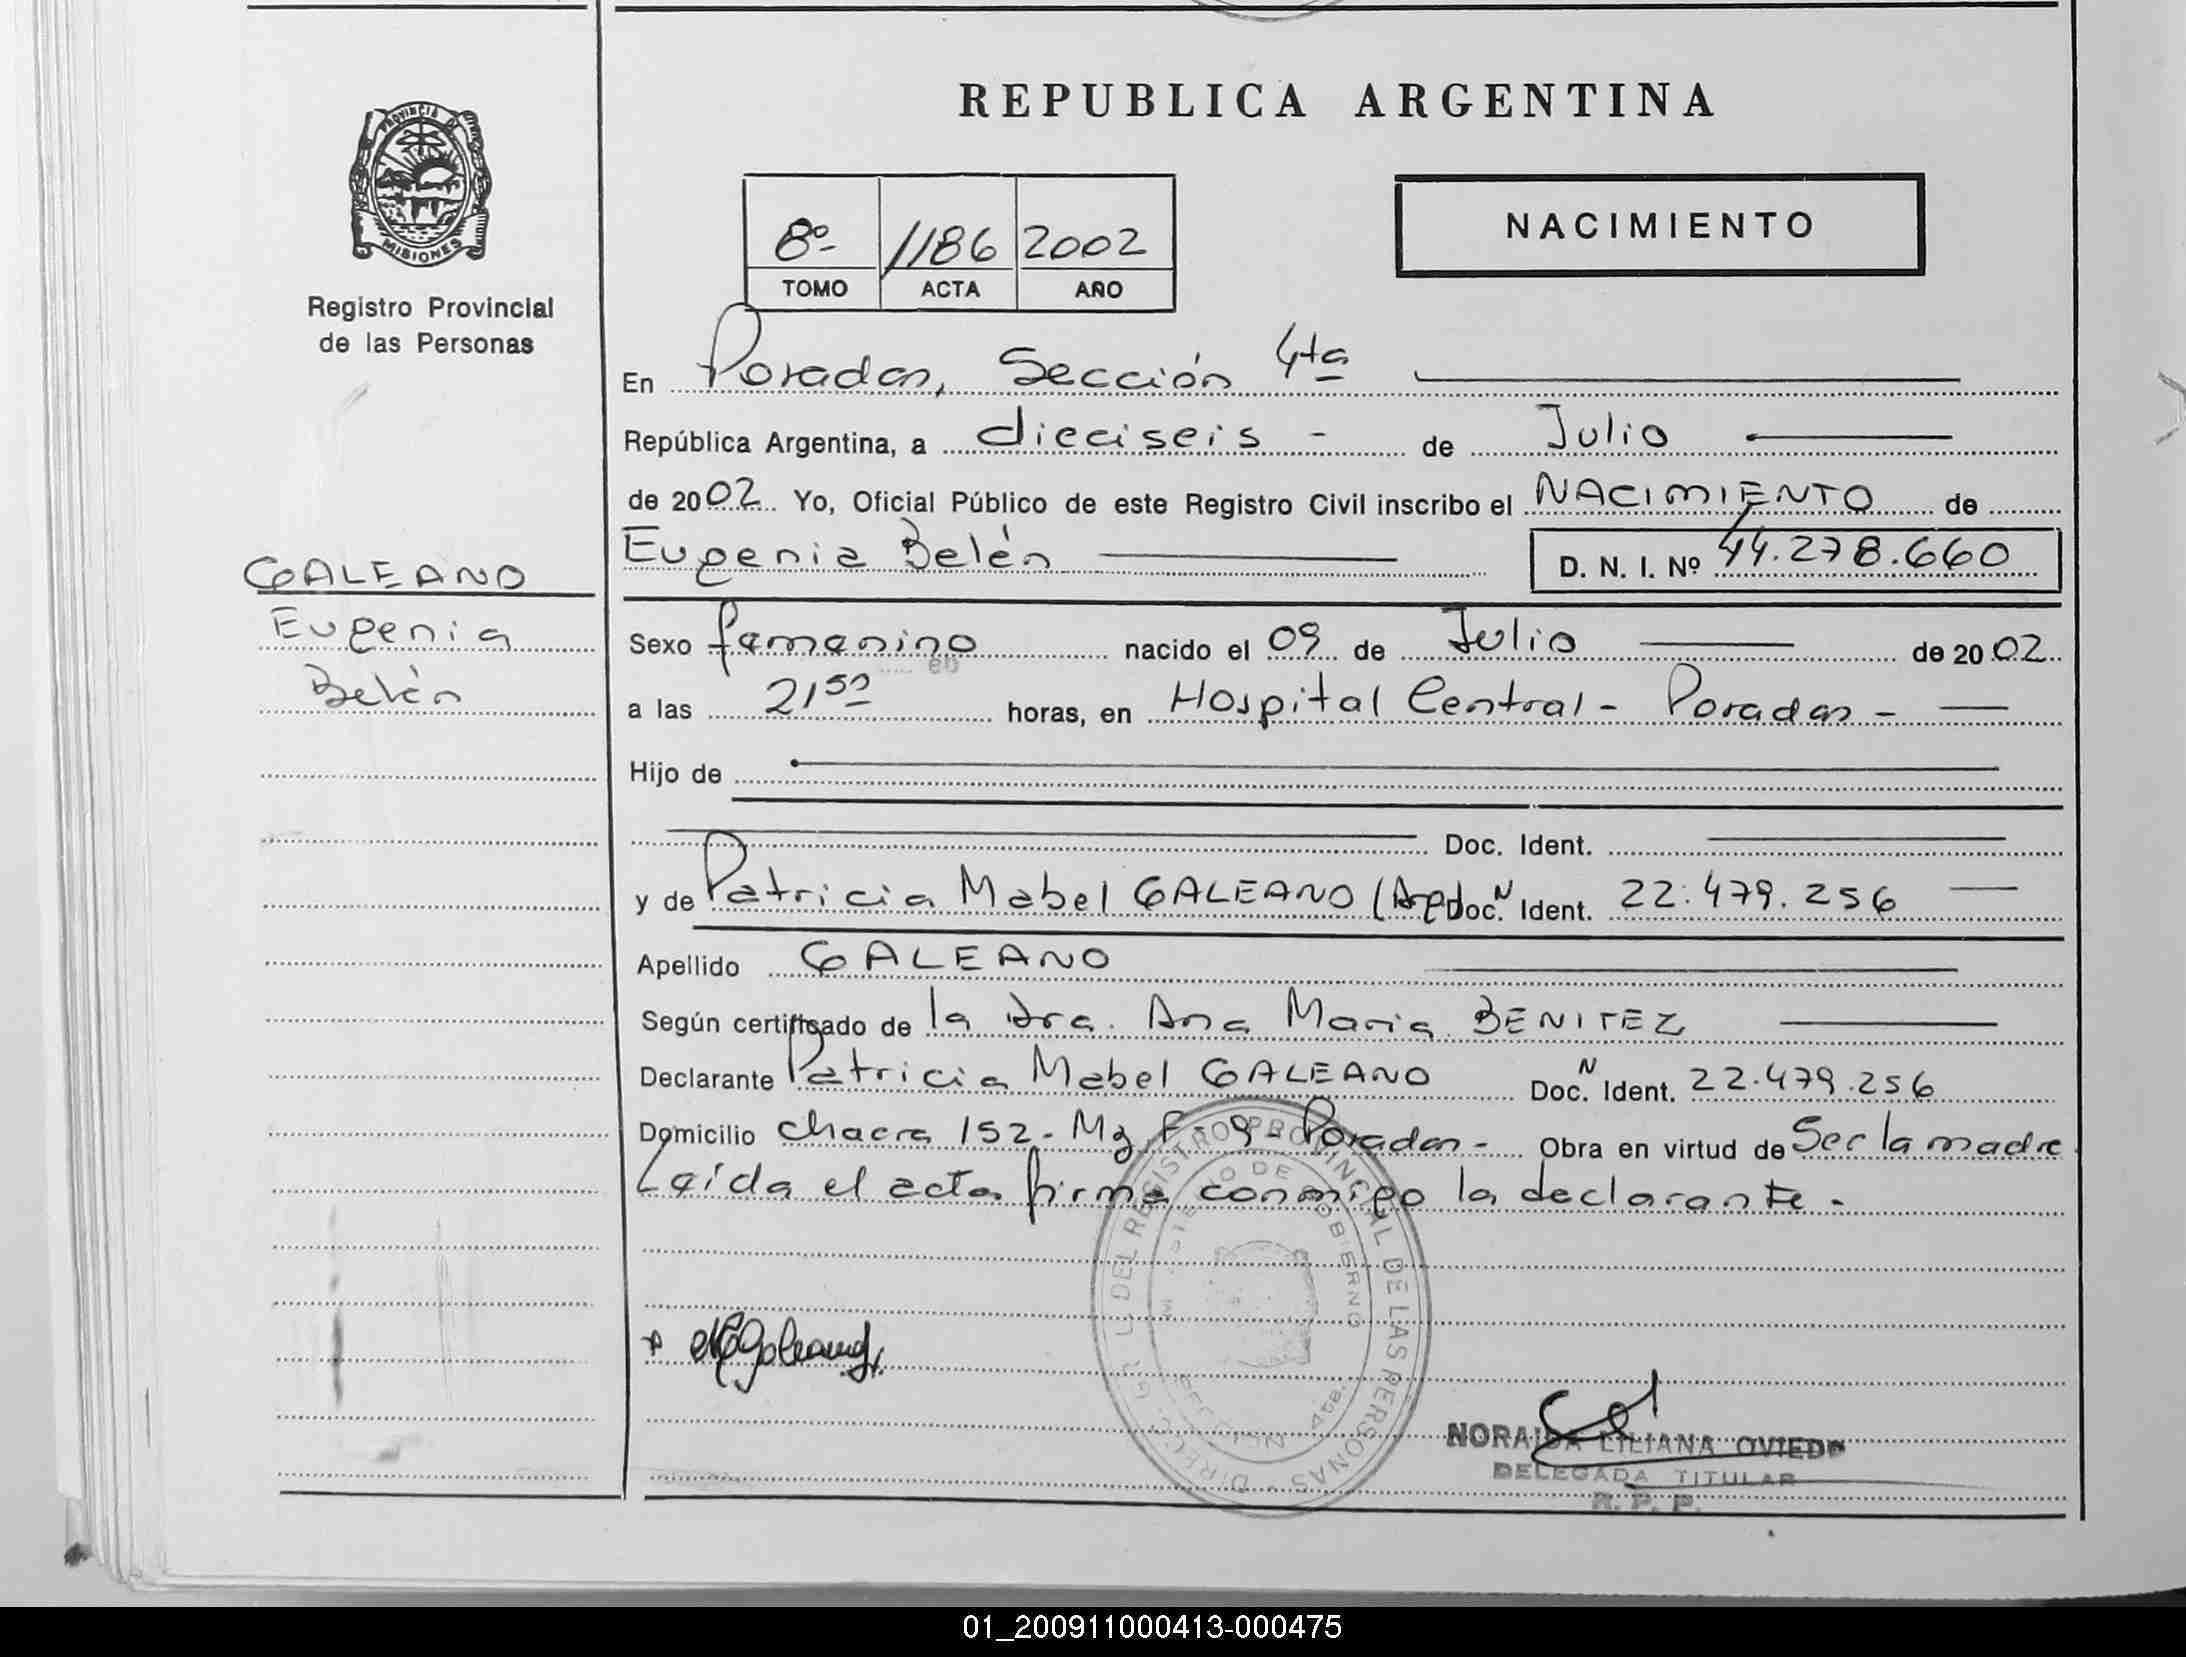 REPUBLICA ARGENTINA
PROVINCIA DE
MISIONES
Registro Provincial
de las Personas
NACIMIENTO
8º 1186 2002
TOMO ACTA AÑO
En Posadas, Sección 4ta
República Argentina, a dieciseis - de Julio
de 2002 Yo, Oficial Público de este Registro Civil inscribo el NACIMIENTO de
GALEANO
Eugenia
Belén
Eugenia Belén D. N. I. Nº 44.278.660
Sexo femenino nacido el 09 de Julio de 2002
a las 21⁵⁰ horas, en Hospital Central - Posadas -
Hijo de
Doc. Ident.
y de Patricia Mabel GALEANO (Arg. Doc. N Ident. 22.479.256
Apellido GALEANO
Según certificado de la dra. Ana Maria BENITEZ
Declarante Patricia Mabel GALEANO Doc. N Ident. 22.479.256
Domicilio chacra 152 - Mz F - 9 - Posadas - Obra en virtud de Ser la madre.
Leída el acta firma conmigo la declarante.
DEL REGISTRO PROVINCIAL DE LAS PERSONAS
DE GOBIERNO
NORAIDA LILIANA OVIEDO
DELEGADA TITULAR
R. P. P.
01_200911000413-000475